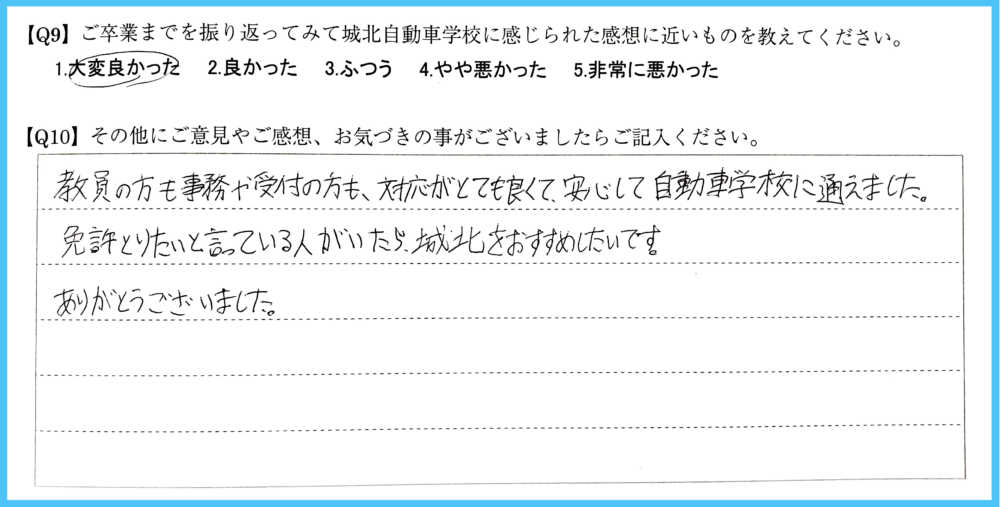 【Q9】ご卒業までを振り返ってみて城北自動車学校に感じられた感想に近いものを教えてください。
1.大変良かった 2.良かった 3.ふつう 4.やや悪かった 5.非常に悪かった
【Q10】その他にご意見やご感想、お気づきの事がございましたらご記入ください。
教員の方も事務や受付の方も、対応がとても良くて、安心して自動車学校に通えました。
免許とりたいと言っている人がいたら、城北をおすすめしたいです。
ありがとうございました。